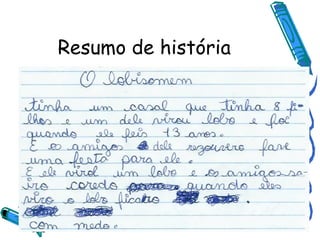 Resumo de história
O lobisomem
tinha um casal que tinha 8 fi-
lhos e um dele virou lobo e foi
quando ele feis 13 anos.
E os amigos dele resouvero fase
uma festa para ele.
E ele virol um lobo e os amigos sa-
iro coredo quando eles
viro o lobo ficaro
com medo.